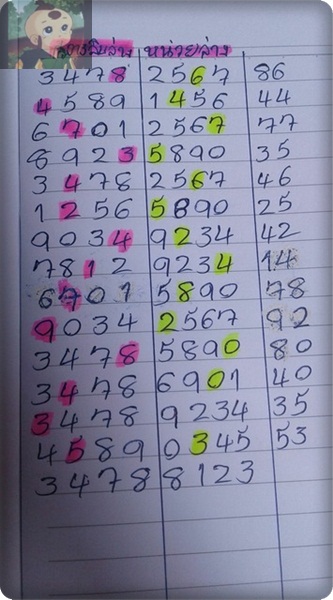 หลักสิบล่าง หน่วยล่าง
3478 2567 86
4589 1456 44
6701 2567 77
8923 5890 35
3478 2567 46
1256 5890 25
9034 9234 42
7812 9234 14
6701 5890 78
9034 2567 92
3478 5890 80
3478 6901 40
3478 9234 35
4589 0345 53
3478 8123